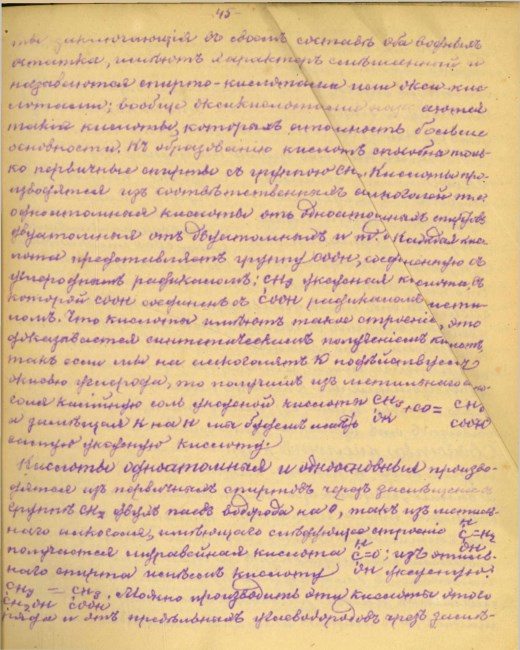 45
ты заключающія въ своемъ составѣ оба водныхъ
остатка, имѣютъ характеръ смѣшанный и
называются спирто-кислотами или окси-кис-
лотами; вообще оксикислотами наз аются
такія кислоты, которыхъ атомность больше
основности. Къ образованію кислотъ способны толь-
ко первичные спирты съ группою CH₂. Кислоты про-
изводятся изъ соотвѣтственныхъ алкоголей т.е.
одноатомная кислоты отъ одноатомныхъ спиртовъ
двуатомныя отъ двуатомныхъ и т.д. Каждая кис-
лота представляетъ группу COOH, соединенную съ
углероднымъ радикаломъ; CH₃ уксусная кислота, въ
которой COOH соединенъ съ COOH радикаломъ мети-
ломъ. Что кислоты имѣютъ такое строеніе, это
доказывается синтетическимъ полученіемъ кислотъ,
такъ если мы на алкоголятъ K подѣйствуемъ
окисью углерода, то получимъ изъ метильнаго алко-
голя калійную соль уксусной кислоты CH₃ + CO = CH₃
и замѣщая K на H мы будемъ имѣть OK COOK
самую уксусную кислоту.
Кислоты одноатомныя и одноосновныя произво-
дятся изъ первичныхъ спиртовъ черезъ замѣщеніе
группѣ CH₂ двухъ паевъ водорода на O, такъ изъ метиль-
наго алкоголя, имѣющаго слѣдующее строеніе H C=H₂ OH
получается муравейная кислота H C=O; изъ этиль-
наго спирта имѣемъ кислоту OH уксусную:
CH₃ = CH₃. Можно производить эти кислоты этого
CH₂OH COOH
ряда и отъ предѣльныхъ углеводородовъ чрезъ замѣ-